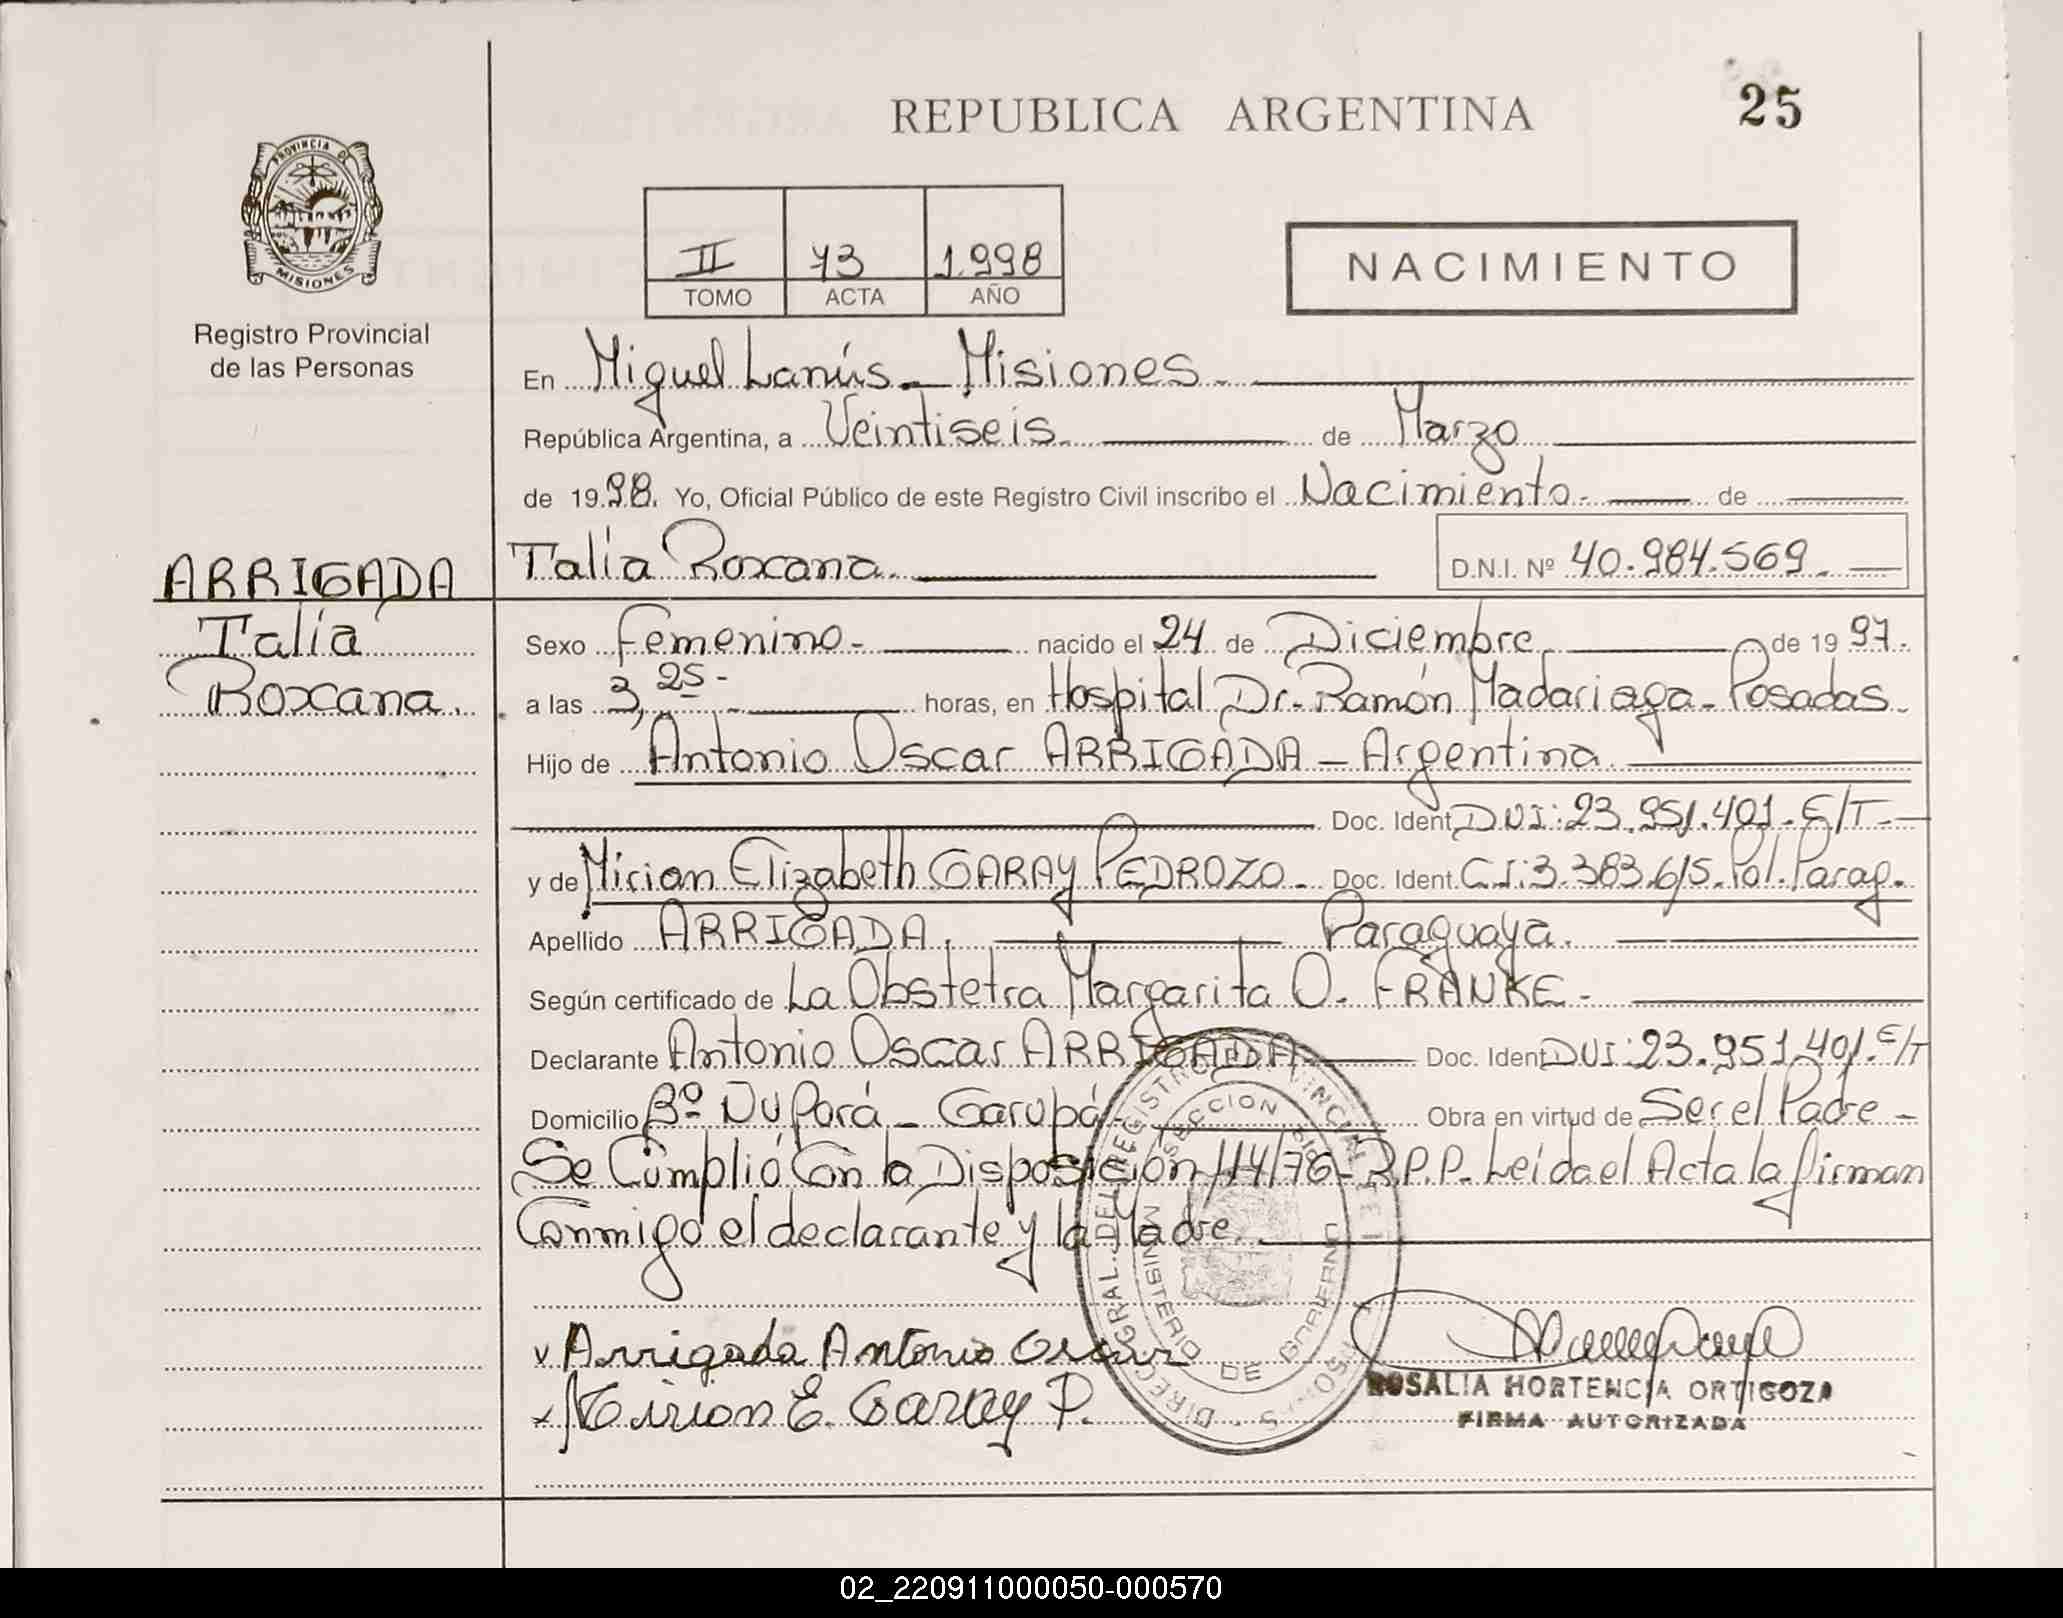 REPUBLICA ARGENTINA
25
PROVINCIA DE
MISIONES
Registro Provincial
de las Personas
II 73 1.998
TOMO ACTA AÑO
NACIMIENTO
En Miguel Lanús - Misiones.
República Argentina, a Veintiseis. de Marzo
de 19 98. Yo, Oficial Público de este Registro Civil inscribo el Nacimiento. de
ARRIGADA
Talía
Roxana.
Talía Roxana.
D.N.I. Nº 40.984.569.
Sexo Femenino- nacido el 24 de Diciembre de 19 97.
a las 3,25- horas, en Hospital Dr. Ramón Madariaga - Posadas.
Hijo de Antonio Oscar ARRIGADA - Argentina.
Doc. Ident. DNI: 23.951.401. E/T.
y de Mirian Elizabeth GARAY PEDROZO. Doc. Ident. C.I: 3.383.615. Pol. Parag.
Apellido ARRIGADA. Paraguaya.
Según certificado de La Obstetra Margarita O. FRANKE-
Declarante Antonio Oscar ARRIGADA Doc. Ident. DNI: 23.951.401. E/T
Domicilio Bº. Ñu Porá - Garupá- Obra en virtud de Ser el Padre -
Se Cumplió Con la Disposición 114/76- R.P.P. Leída el Acta la firman
Conmigo el declarante y la Madre.
v Arrigada Antonio Oscar
x Mirion E. Garay P.
ROSALIA HORTENCIA ORTIGOZA
FIRMA AUTORIZADA
MINISTERIO DE GOBIERNO
02_220911000050-000570